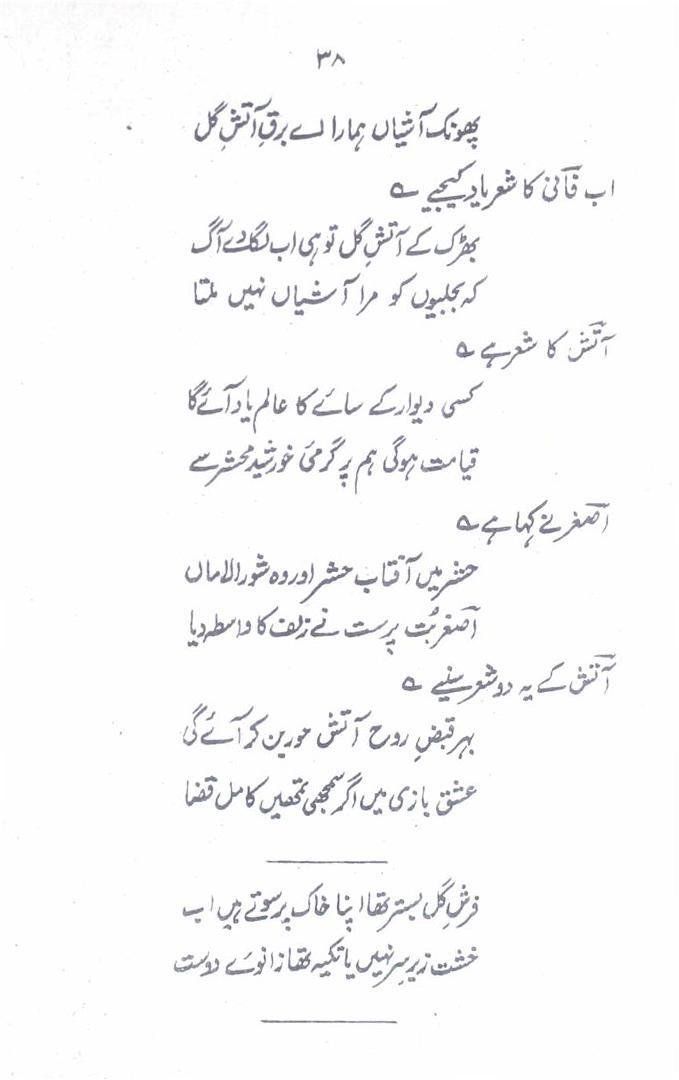 ۳۸
پھونک آشیاں ہمارا اے برقِ آتشِ گل
اب فانی کا شعر یاد کیجیے ؎
بھڑک کے آتشِ گل تو ہی اب لگادے آگ
کہ بجلیوں کو مرا آشیاں نہیں ملتا
آتش کا شعر ہے ؎
کسی دیوار کے سائے کا عالم یاد آئے گا
قیامت ہوگی ہم پر گرمیٔ خورشید محشر سے
اصغر نے کہا ہے ؎
حشر میں آفتاب حشر اور وہ شور الاماں
اصغر بُت پرست نے زلف کا واسطہ دیا
آتش کے یہ دو شعر سنیے ؎
بہر قبضِ روح آتش حور بن کر آئے گی
عشق بازی میں اگر سمجھی تمھیں کامل قضا
فرشِ گل بستر تھا اپنا خاک پر سوتے ہیں اب
خشت زیرِ سر نہیں یا تکیہ تھا زانوے دوست